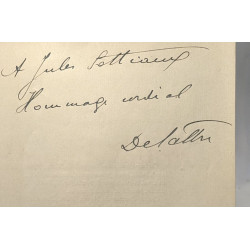 A Jules Sottiaux
Hommage cordial
Delattre